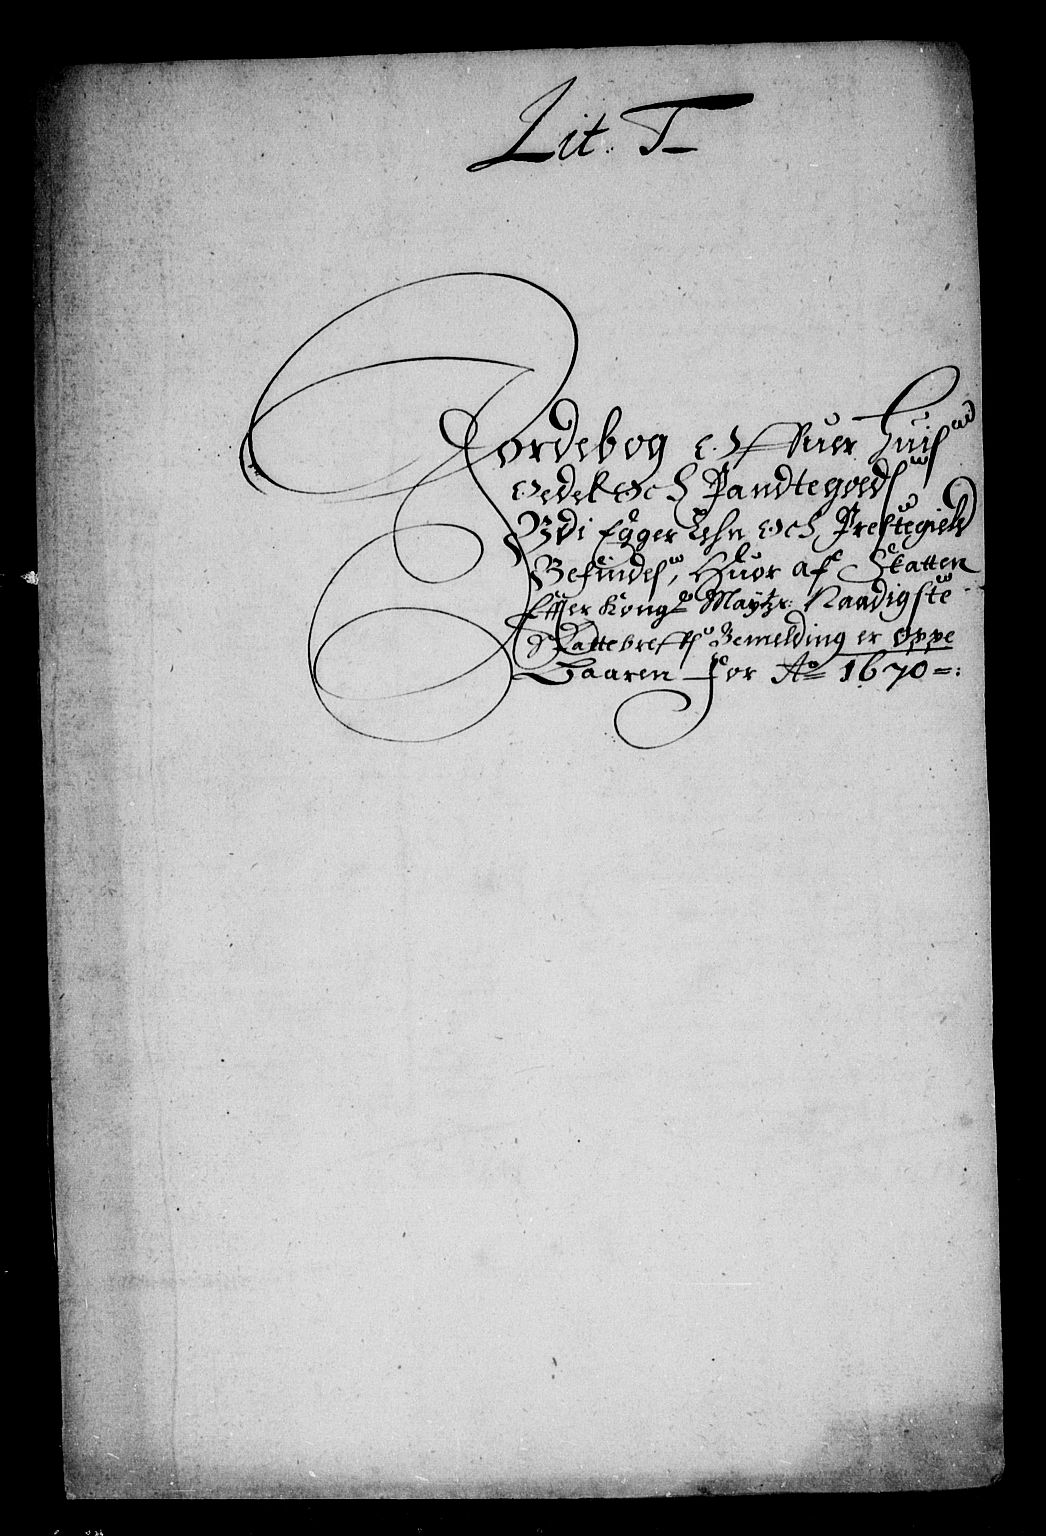 Lit. T
Jordebog Offuer Huis
Oedel Och Pandtegoeds
Udi Egger Lehn Och Prestegield
Befindes, Huor af Skatten
Effter Kongl Maytz: Naadigste
Skattebreffs Bemelding er Oppe
Baaren for Ao 1670